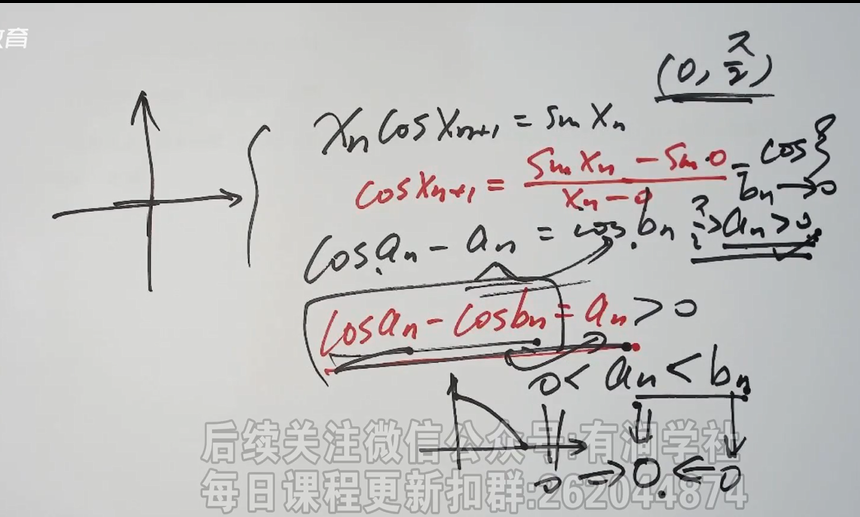 教育
(0, π/2)
xₙ cos xₙ₊₁ = sin xₙ
cos xₙ₊₁ = (sin xₙ − sin 0)/(xₙ − 0) = cos ξ
bₙ → 0
cos aₙ − aₙ = cos bₙ ? ⇒ aₙ > 0
cos aₙ − cos bₙ = aₙ > 0
0 < aₙ < bₙ
0 ⇒ 0 ⇐ 0
后续关注微信公众号:有润学社
每日课程更新扣群:262044874